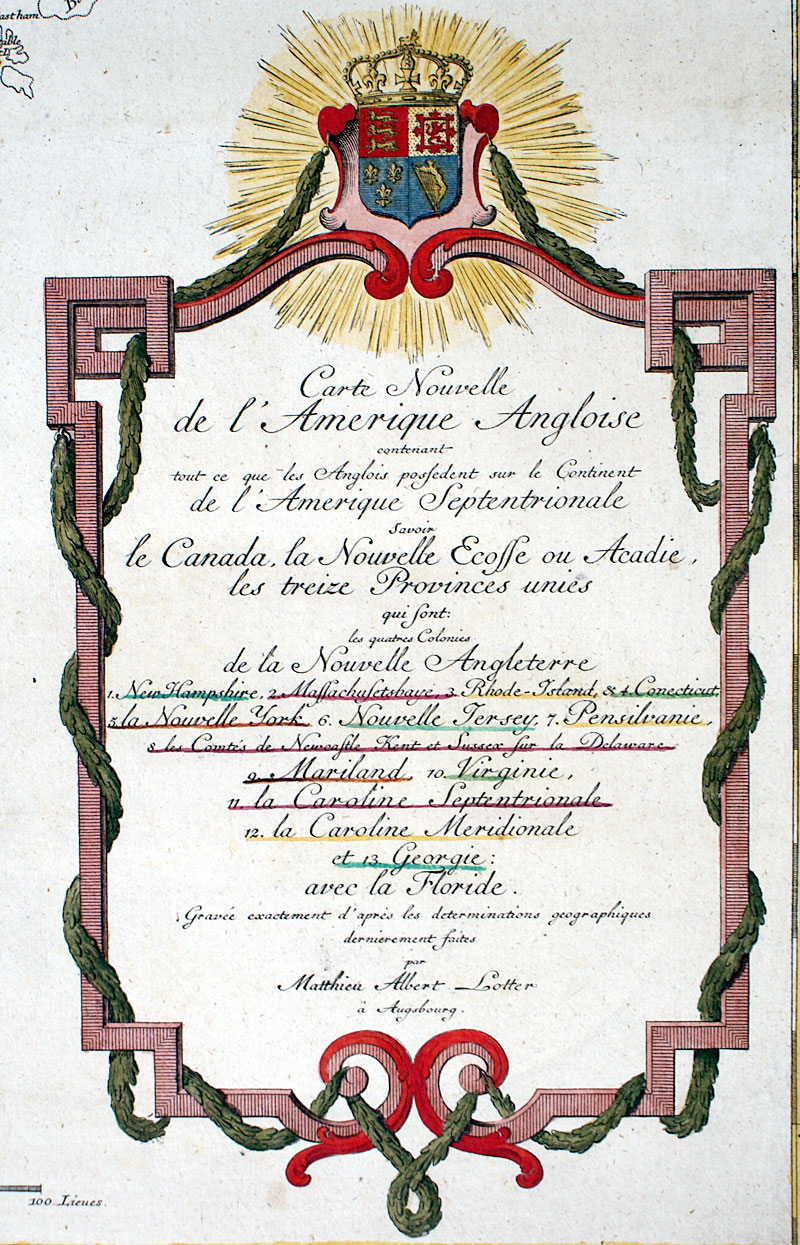 Carte Nouvelle
de l'Amerique Angloise
contenant
tout ce que les Anglois possedent sur le Continent
de l'Amerique Septentrionale
Savoir
le Canada, la Nouvelle Ecosse ou Acadie,
les treize Provinces unies
qui sont:
les quatres Colonies
de la Nouvelle Angleterre
1. New Hampshire, 2 Massachusetsbaye, 3. Rhode-Island, & 4 Conecticut,
5 la Nouvelle York. 6. Nouvelle Jersey, 7. Pensilvanie,
8 les Comtés de Newcastle Kent et Sussex sur la Delaware
9. Mariland, 10. Virginie,
11 la Caroline Septentrionale
12. la Caroline Meridionale
et 13. Georgie:
avec la Floride.
Gravée exactement d'après les determinations geographiques
dernierement faites
par
Matthieu Albert Lotter
à Augsbourg.
100. Lieues.